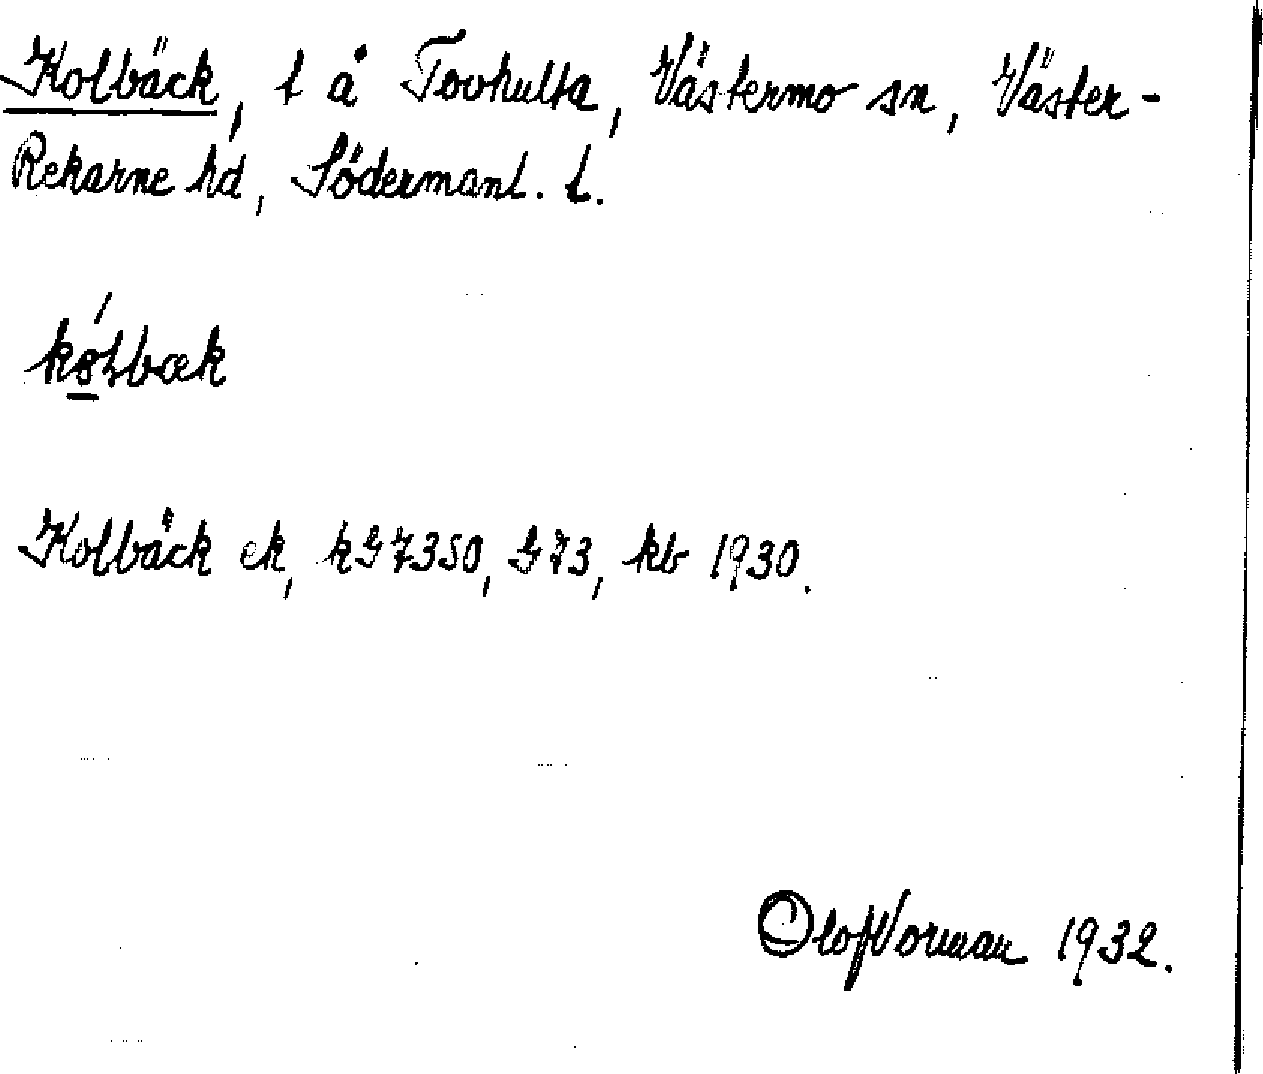 Kolbäck, t å Tovhulta, Västermo sn, Väster-
Rekarne hd, Södermanl. l.
Kolbäck ek, kG7350, G73, kb 1930.
Olof Norman 1932.